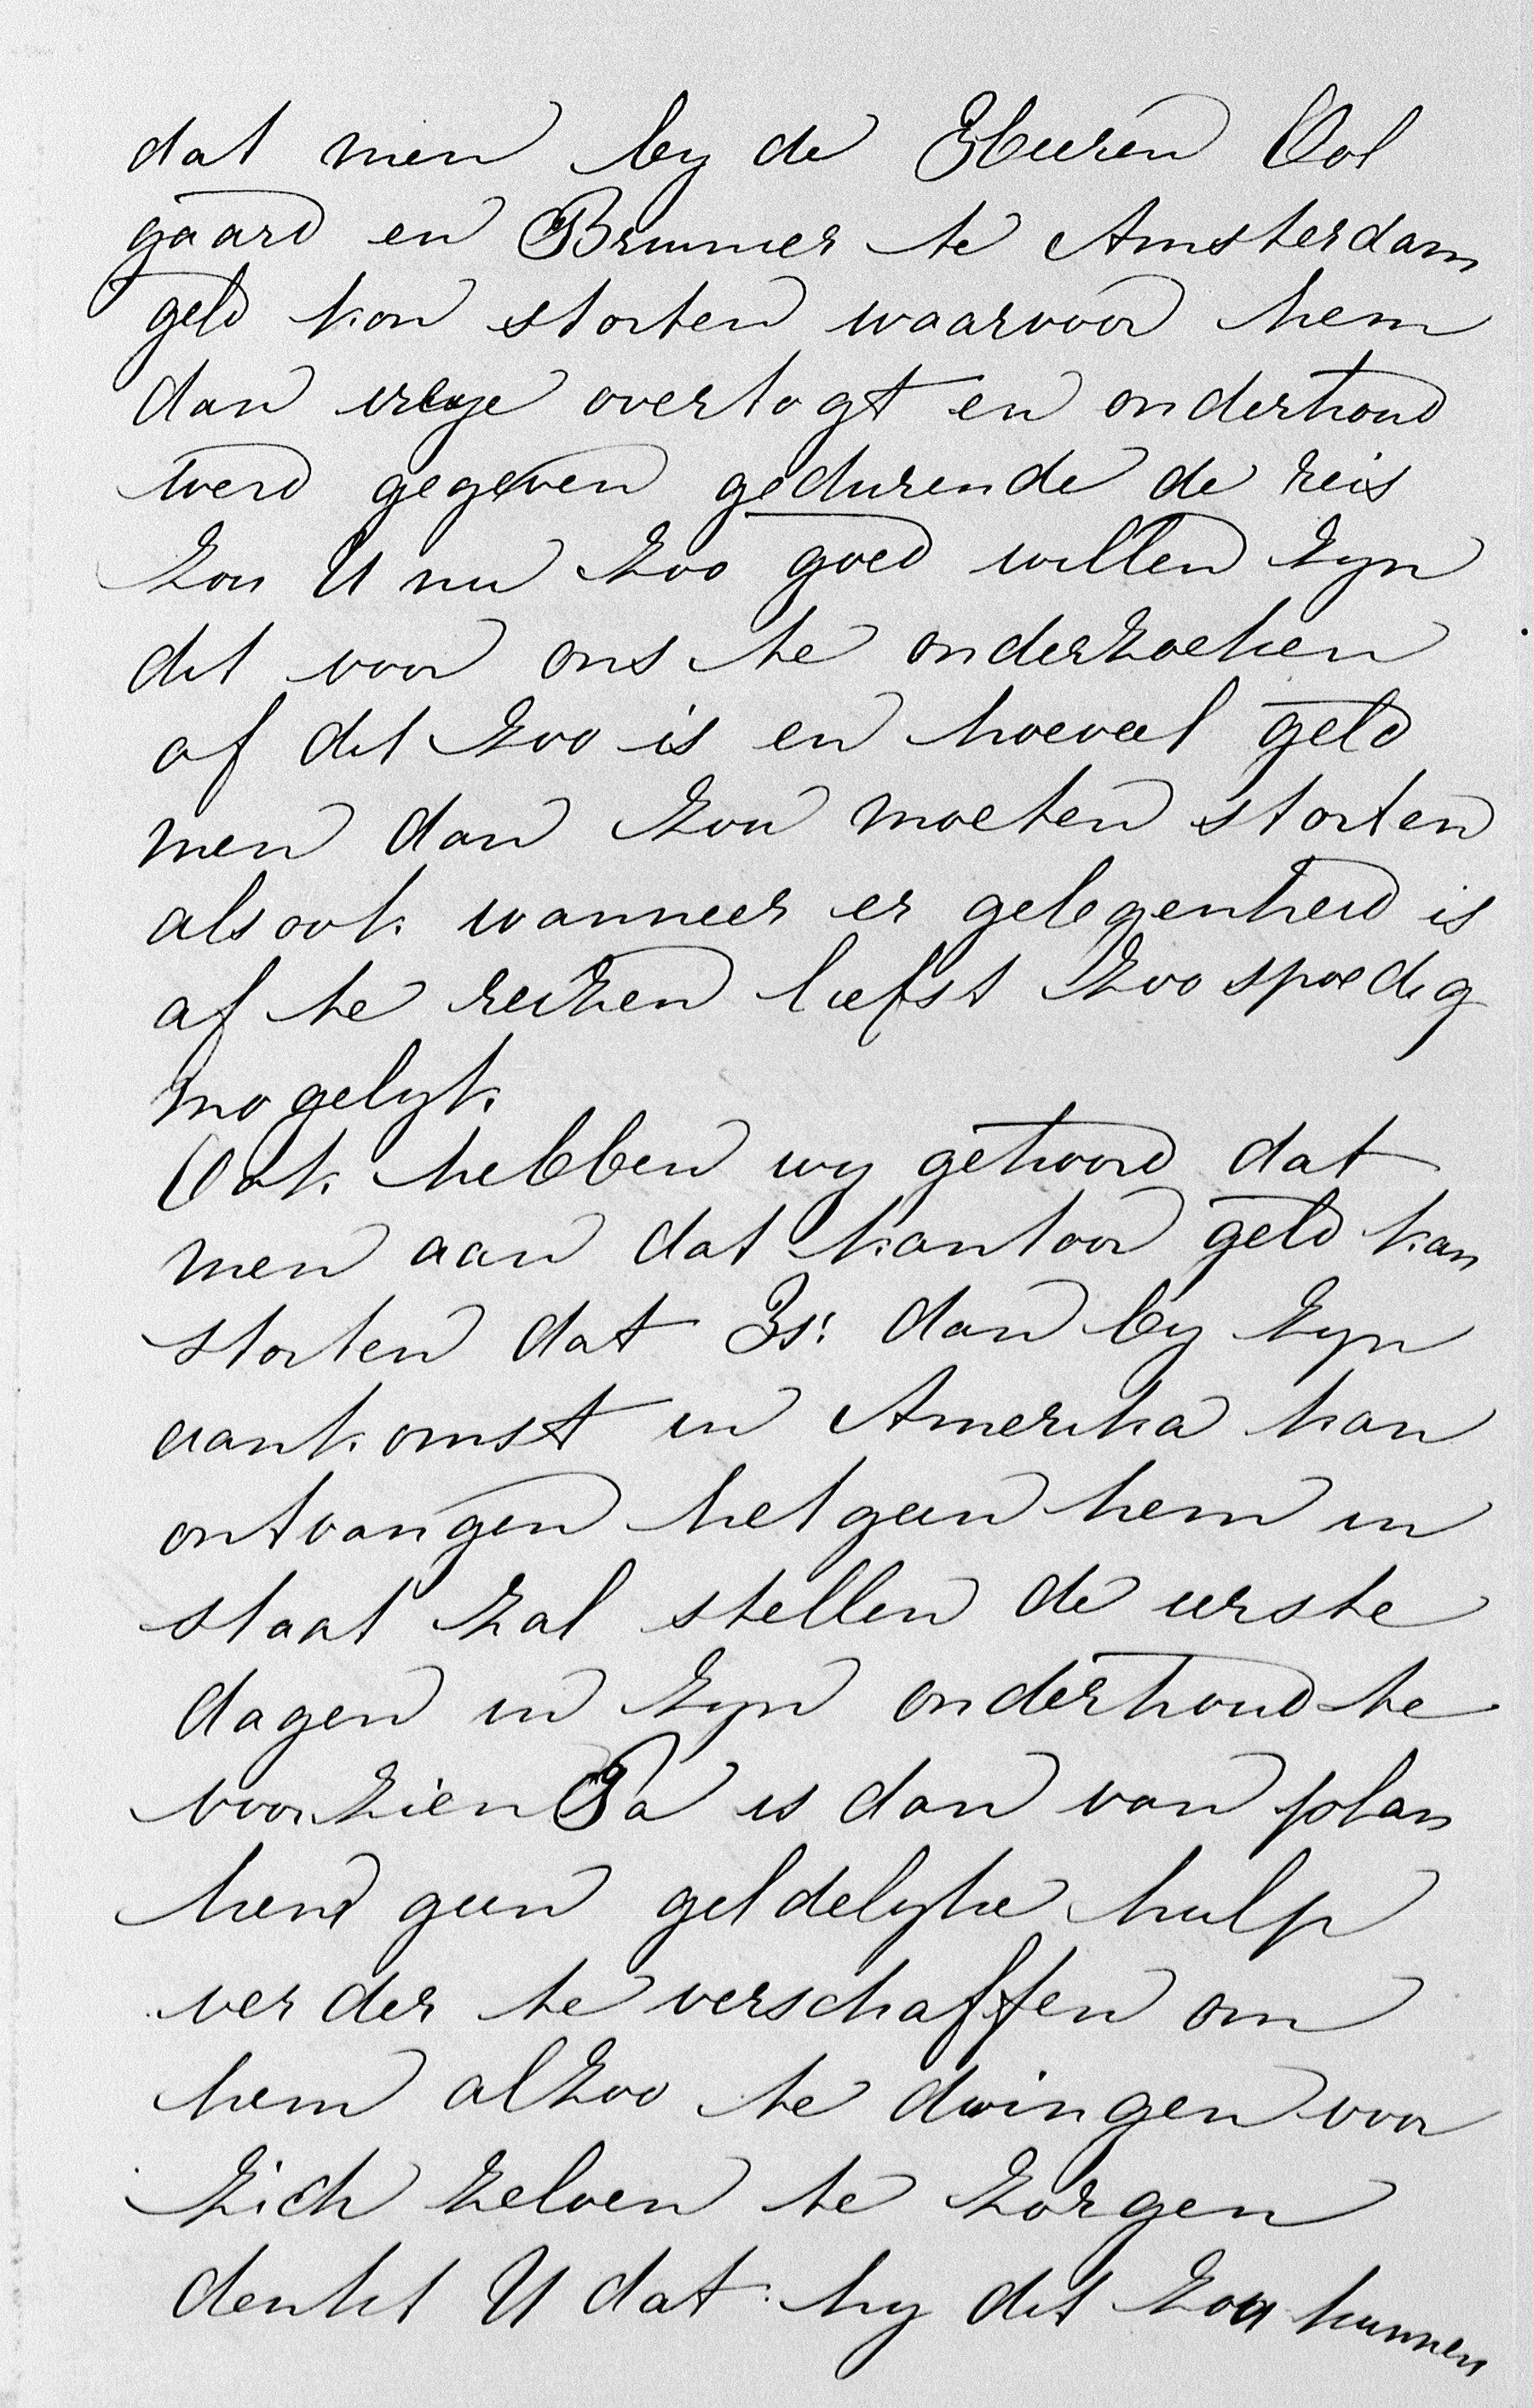 dat men by de Heeren Ool
gaard en Bruinier te Amsterdam
geld kon storten waarvoor hem
dan vrye overtogt en onderhoud
werd gegeven gedurende de reis
Zou U nu zoo goed willen zyn
dit voor ons te onderzoeken
of dit zoo is en hoeveel geld
men dan zou moeten storten
alsook wanneer er gelegenheid is
af te reizen liefst zoo spoedig
mogelyk.
Ook hebben wy gehoord dat
men aan dat kantoor geld kan
storten dat Is: dan by zyn
aankomst in Amerika kan
ontvangen hetgeen hem in
staat zal stellen de eerste
dagen in zyn onderhoud te
voorzien Pa is dan van plan
hem geen geldelyke hulp
verder te verschaffen om
hem alzoo te dwingen voor
zich zelven te zorgen
denkt U dat hy dit zou kunnen